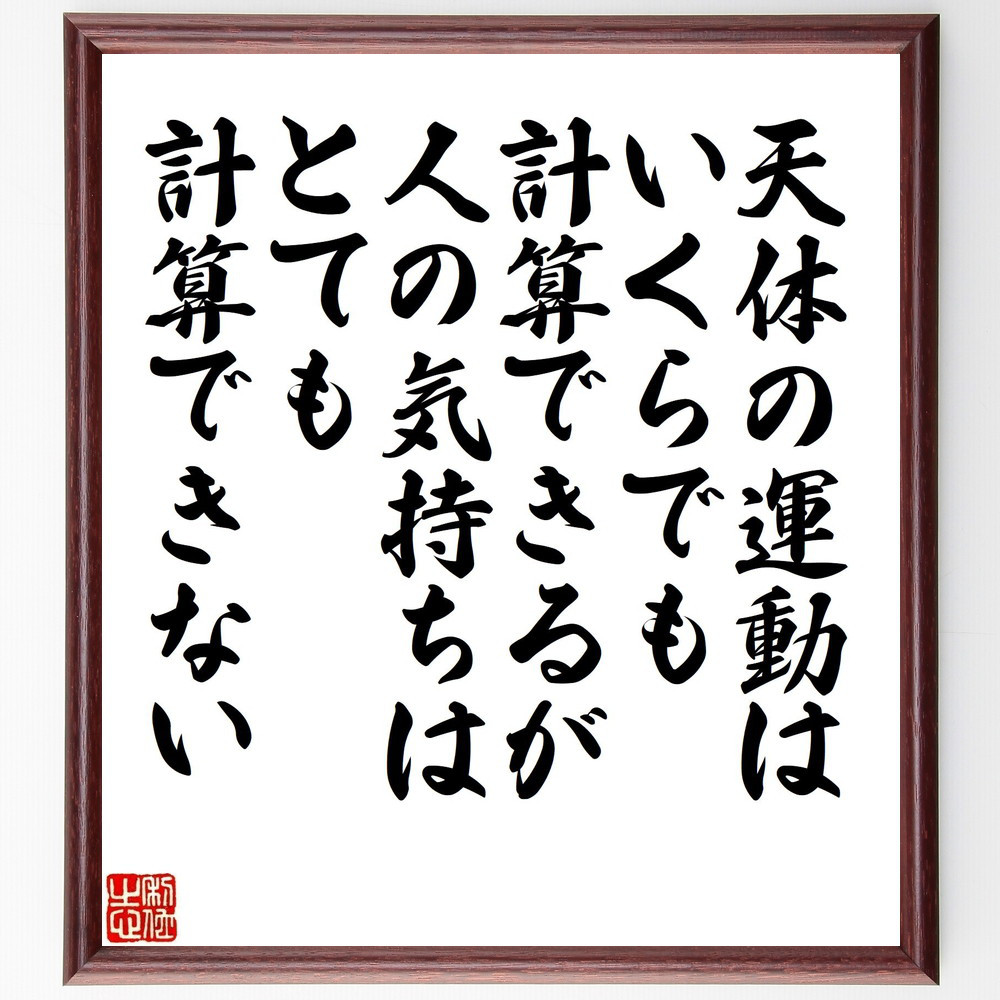 天体の運動は
いくらでも
計算できるが
人の気持ちは
とても
計算できない